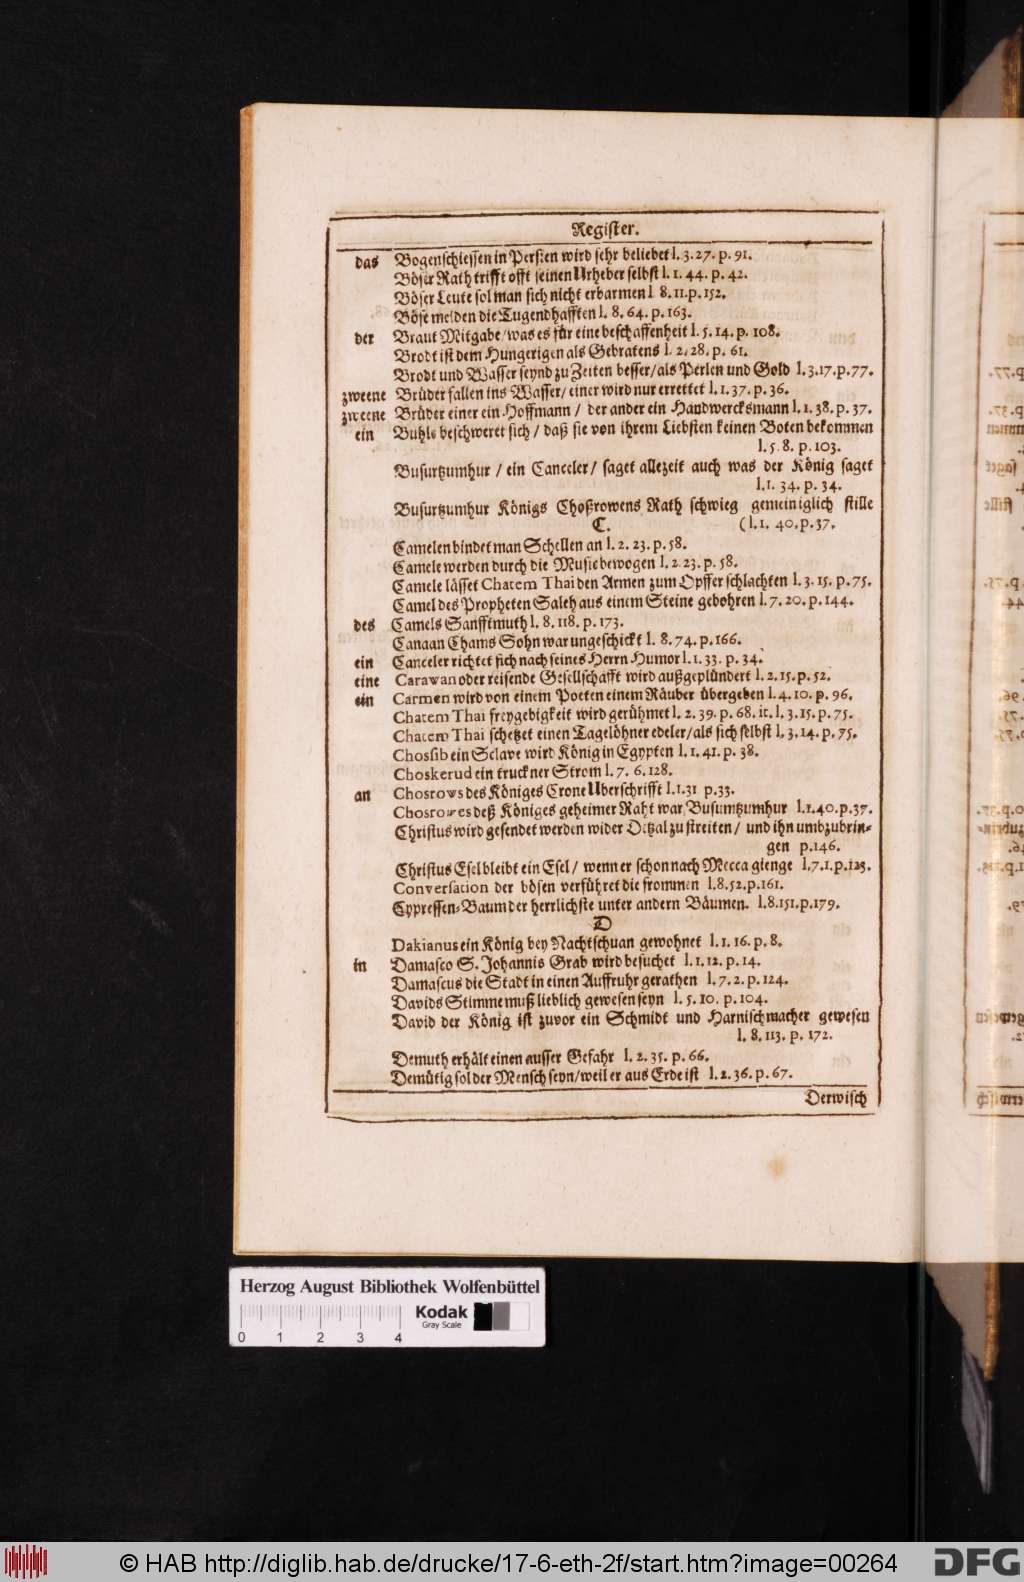 Register.
das Bogenschiessen in Persien wird sehr beliebet l. 3. 27. p. 91.
Böser Rath trifft offt seinen Urheber selbst l. 1. 44. p. 42.
Böser Leute sol man sich nicht erbarmen l. 8. 11. p. 152.
Böse melden die Tugendhafften l. 8. 64. p. 163.
der Braut Mitgabe / was es für eine beschaffenheit l. 5. 14. p. 108.
Brodt ist dem Hungerigen als Gebratens l. 2. 28. p. 61.
Brodt und Wasser seynd zu Zeiten besser / als Perlen und Gold l. 3. 17. p. 77.
zweene Brüder fallen ins Wasser / einer wird nur errettet l. 1. 37. p. 36.
zweene Brüder einer ein Hoffmann / der ander ein Handwercksmann l. 1. 38. p. 37.
ein Buhle beschweret sich / daß sie von ihrem Liebsten keinen Boten bekommen
l. 5. 8. p. 103.
Busurtzumhur / ein Canceler / saget allezeit auch was der König saget
l. 1. 34. p. 34.
Busurtzumhur Königs Choßrowens Rath schwieg gemeiniglich stille
C. ( l. 1. 40. p. 37.
Camelen bindet man Schellen an l. 2. 23. p. 58.
Camele werden durch die Musie bewogen l. 2. 23. p. 58.
Camele lässet Chatem Thai den Armen zum Opffer schlachten l. 3. 15. p. 75.
Camel des Propheten Saleh aus einem Steine gebohren l. 7. 20. p. 144.
des Camels Sanfftmuth l. 8. 118. p. 173.
Canaan Chams Sohn war ungeschickt l. 8. 74. p. 166.
ein Canceler richtet sich nach seines Herrn Humor l. 1. 33. p. 34.
eine Carawan oder reisende Gesellschafft wird außgeplündert l. 2. 15. p. 52.
ein Carmen wird von einem Poeten einem Räuber übergeben l. 4. 10. p. 96.
Chatem Thai freygebigkeit wird gerühmet l. 2. 39. p. 68. it. l. 3. 15. p. 75.
Chatem Thai schetzet einen Tagelöhner edeler / als sich selbst l. 3. 14. p. 75.
Chossib ein Sclave wird König in Egypten l. 1. 41. p. 38.
Choskerud ein truckner Strom l. 7. 6. 128.
an Chosrows des Königes Crone Uberschrifft l. 1. 31 p. 33.
Chosrowes deß Königes geheimer Raht war Busurtzumhur l. 1. 40. p. 37.
Christus wird gesendet werden wider Detzal zu streiten / und ihn umbzubrin-
gen p. 146.
Christus Esel bleibt ein Esel / wenn er schon nach Mecca gienge l. 7. 1. p. 123.
Conversation der bösen verführet die frommen l. 8. 52. p. 161.
Cypressen-Baum der herrlichste unter andern Bäumen. l. 8. 151. p. 179.
D
Dakianus ein König bey Nachtschuan gewohnet l. 1. 16. p. 8.
in Damasco S. Johannis Grab wird besuchet l. 1. 12. p. 14.
Damascus die Stadt in einen Auffruhr gerathen l. 7. 2. p. 124.
Davids Stimme muß lieblich gewesen seyn l. 5. 10. p. 104.
David der König ist zuvor ein Schmidt und Harnischmacher gewesen
l. 8. 113. p. 172.
Demuth erhält einen ausser Gefahr l. 2. 35. p. 66.
Demütig sol der Mensch seyn / weil er aus Erde ist l. 2. 36. p. 67.
Derwisch
Herzog August Bibliothek Wolfenbüttel
0 1 2 3 4
Kodak
Gray Scale
© HAB http://diglib.hab.de/drucke/17-6-eth-2f/start.htm?image=00264
DFG